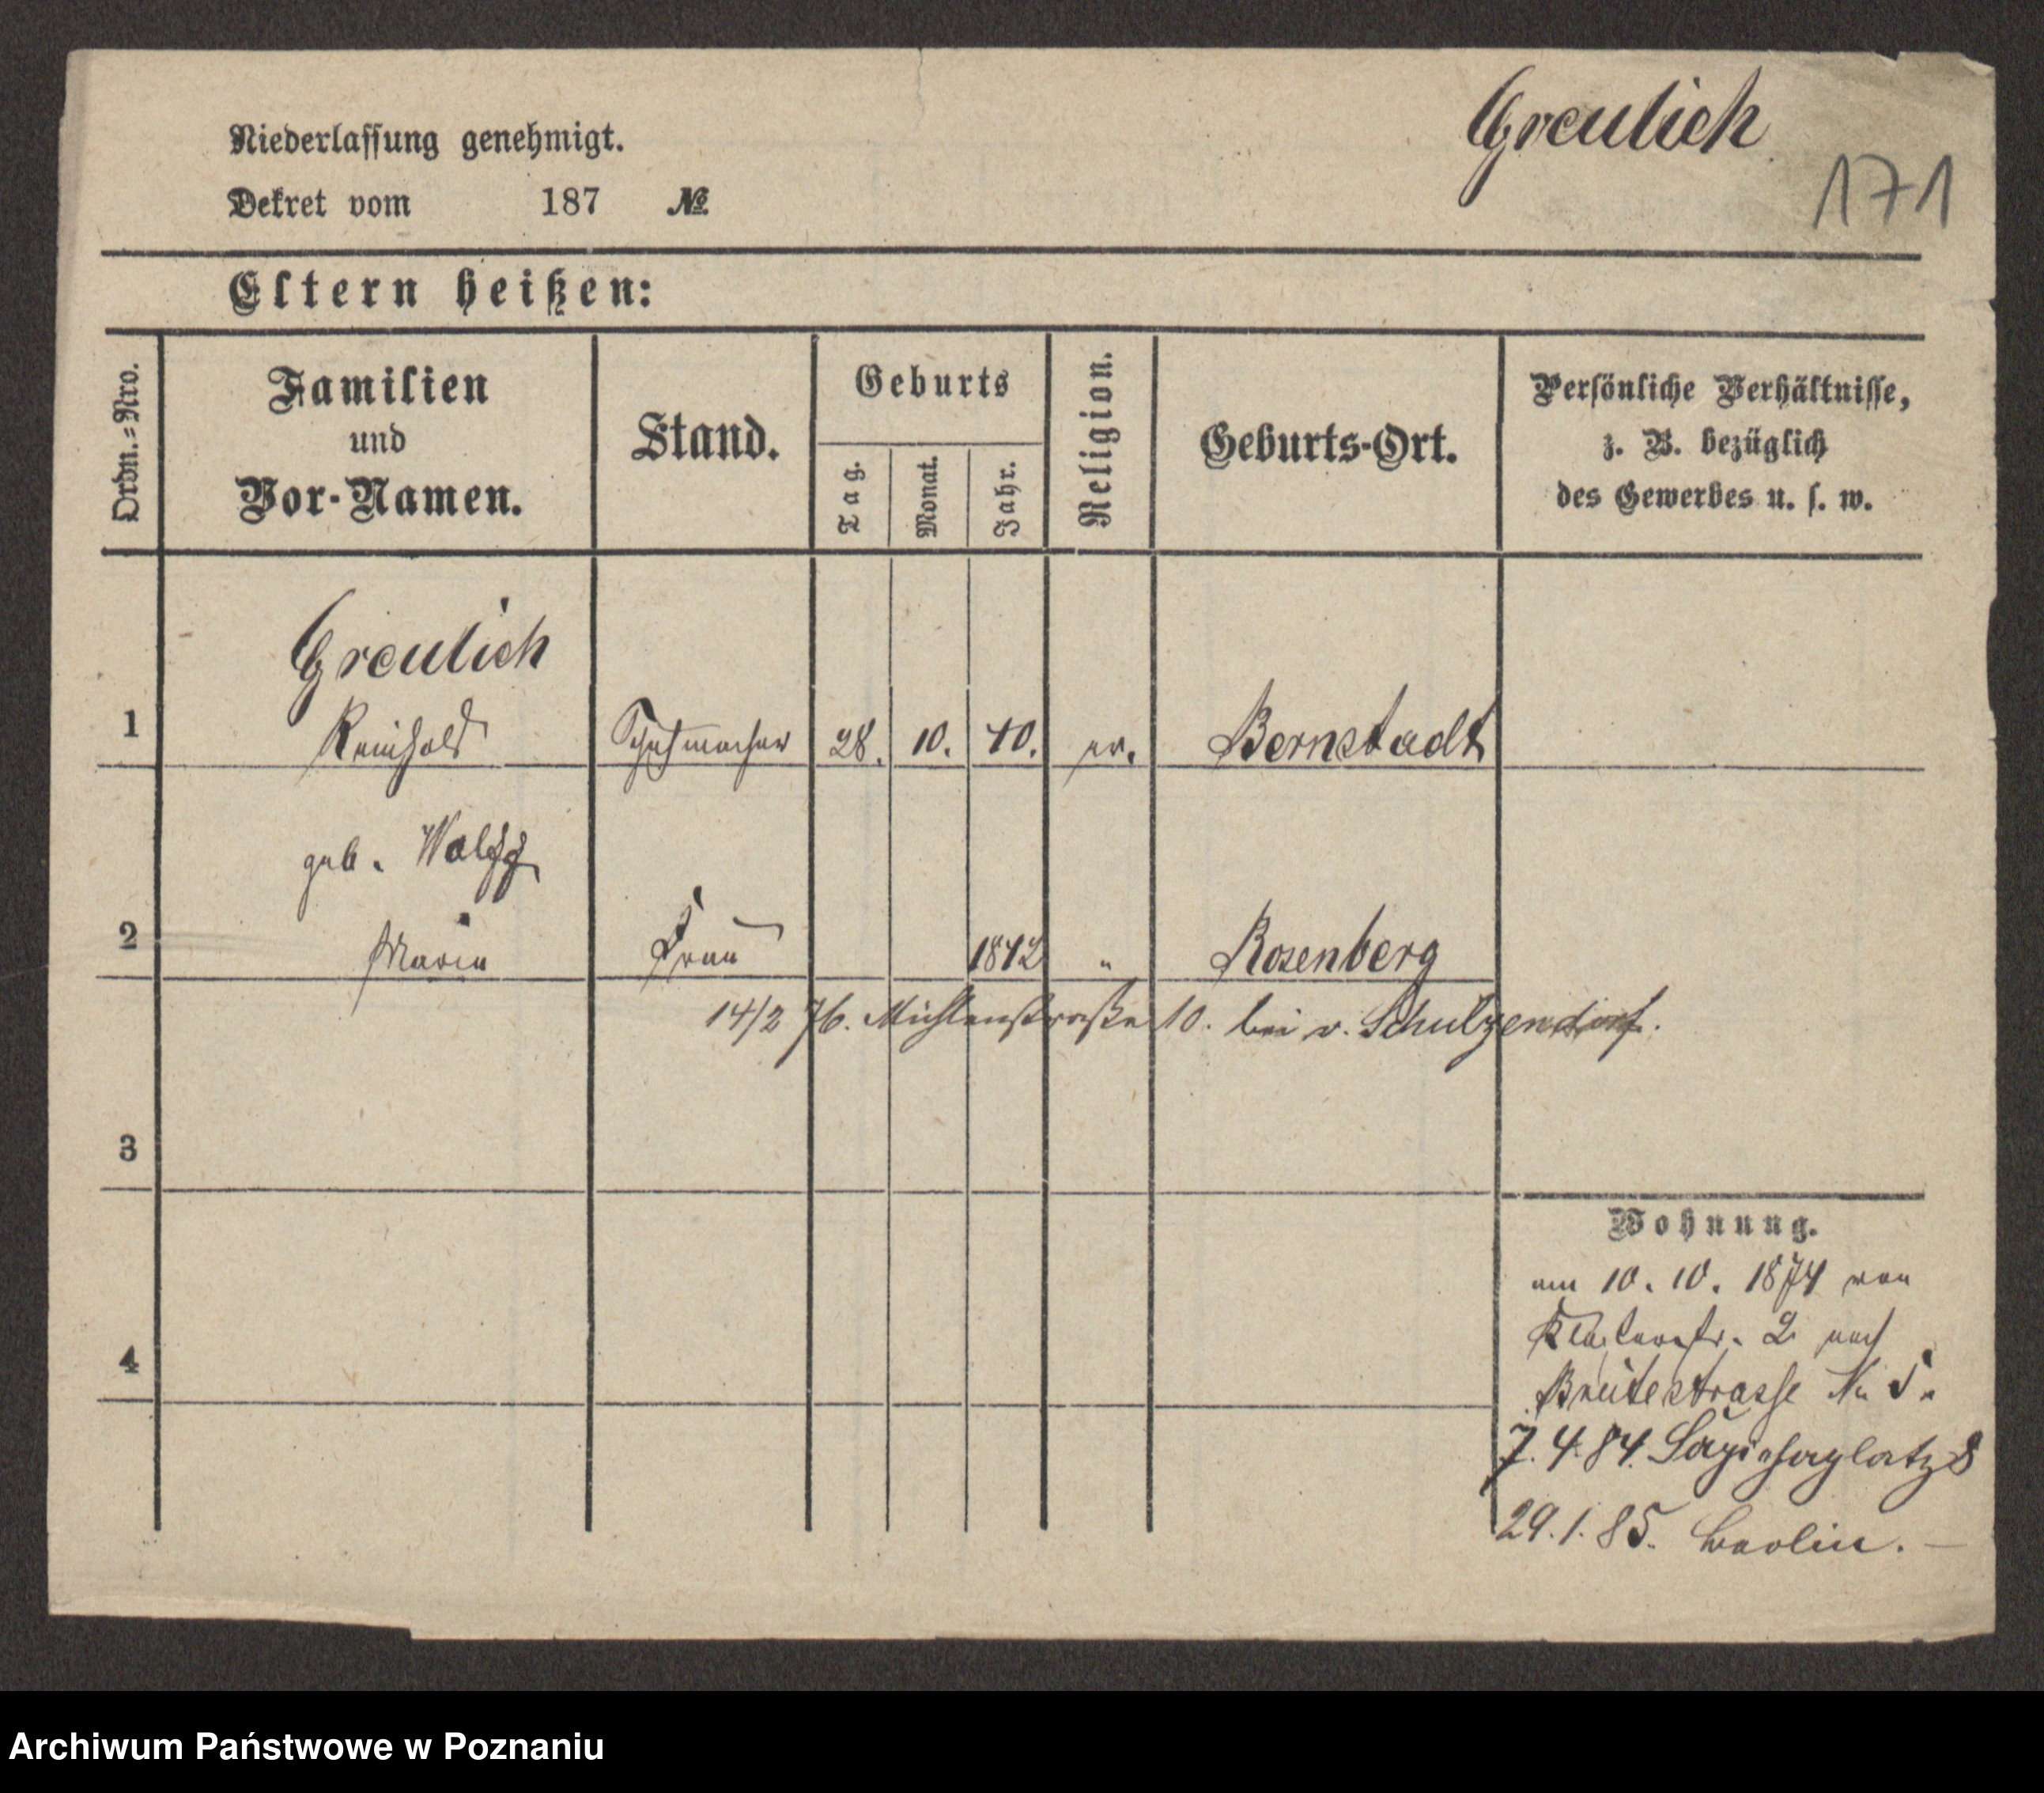 Greulich
171
Niederlassung genehmigt.
Dekret vom 187 №
Eltern heißen:
Ordn.=Nro.
Familien
und
Vor-Namen.
Stand.
Geburts
Tag.
Monat.
Jahr.
Religion.
Geburts-Ort.
Persönliche Verhältnisse,
z. B. bezüglich
des Gewerbes u. s. w.
Greulich
1 Reinhold Schuhmacher 28. 10. 40. ev. Bernstadt
geb.
2 Maria Frau 1842 " Rosenberg
14/2 76. Mühlenstraße 10. bei v. Schulzendorf.
3
4
Wohnung.
am 10. 10. 1874 von
2 nach
Breitestrasse No 5.
7. 4. 84. Sapiehaplatz 8
29. 1. 85. Berlin. —
Archiwum Państwowe w Poznaniu